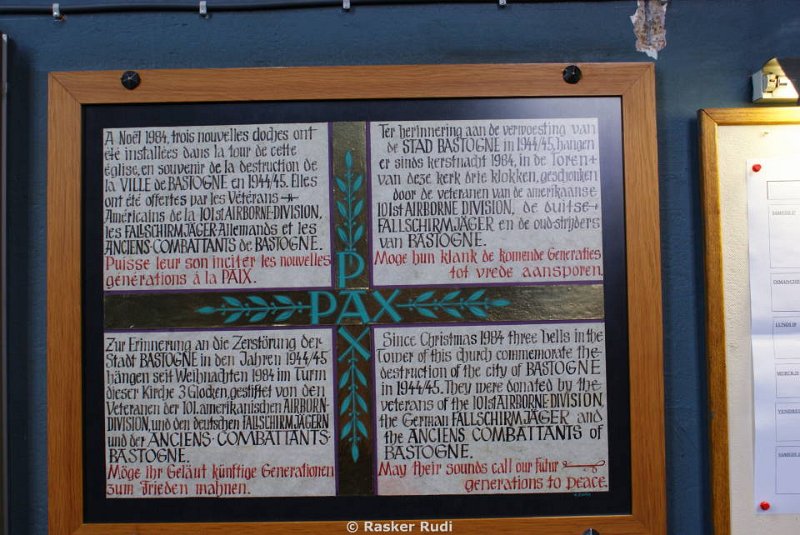 A Noël 1984, trois nouvelles cloches ont
été installées dans la tour de cette
église, en souvenir de la destruction de
la VILLE de BASTOGNE en 1944/45. Elles
ont été offertes par les Vétérans
Américains de la 101st AIRBORNE-DIVISION,
les FALLSCHIRMJÄGER Allemands et les
ANCIENS-COMBATTANTS de BASTOGNE.
Puisse leur son inciter les nouvelles
générations à la PAIX.
Ter herinnering aan de verwoesting van
de STAD BASTOGNE in 1944/45, hangen
er sinds kerstnacht 1984, in de Toren
van deze kerk drie klokken, geschenken
door de veteranen van de amerikaanse
101st AIRBORNE DIVISION, de duitse
FALLSCHIRMJÄGER en de oud-strijders
van BASTOGNE.
Moge hun klank de komende Generaties
tot vrede aansporen.
PAX
PAX
Zur Erinnerung an die Zerstörung der
Stadt BASTOGNE in den Jahren 1944/45
hängen seit Weihnachten 1984 im Turm
dieser Kirche 3 Glocken, gestiftet von den
Veteranen der 101. amerikanischen AIRBORN-
DIVISION, und den deutschen FALLSCHIRMJÄGERN
und der ANCIENS-COMBATTANTS-
BASTOGNE.
Möge ihr Geläut künftige Generationen
zum Frieden mahnen.
Since Christmas 1984 three bells in the
Tower of this church commemorate the
destruction of the city of BASTOGNE
in 1944/45. They were donated by the
veterans of the 101st AIRBORNE DIVISION,
the German FALLSCHIRMJÄGER and
the ANCIENS COMBATTANTS of
BASTOGNE.
May their sounds call our futur
generations to peace.
© Rasker Rudi